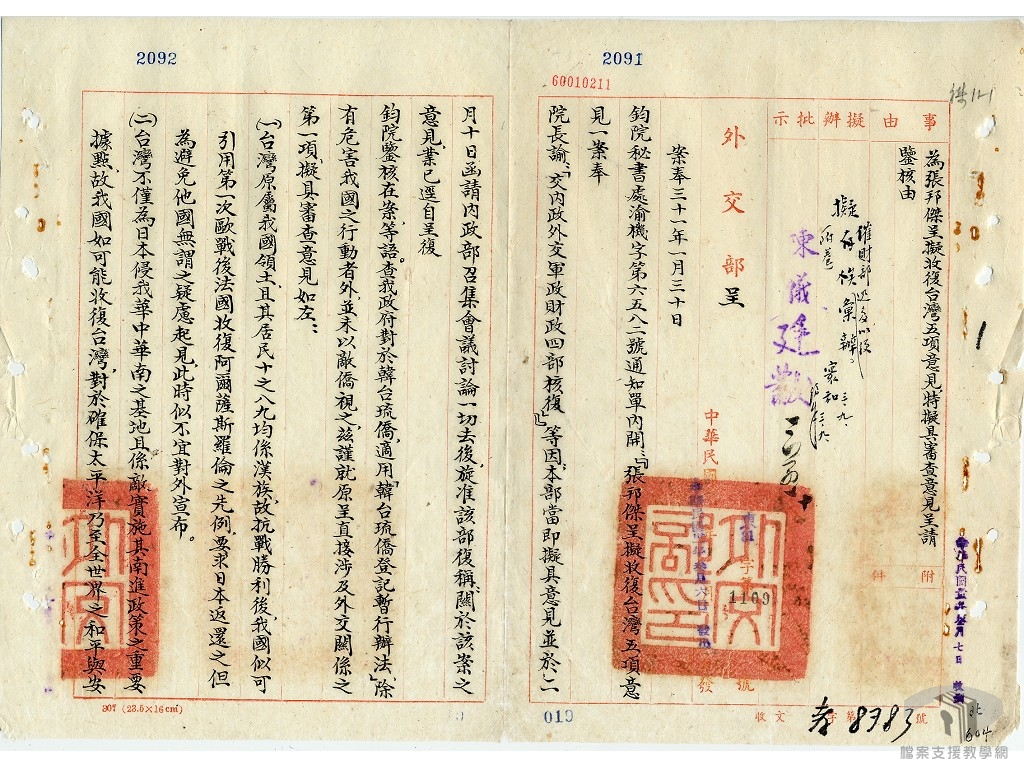 2092
2091
60010211
事由擬辦批示
為張邦傑呈擬收復台灣五項意見特擬具審查意見呈請
鑒核由
附件
陳儀
外交部呈
中華民國
1109
號
發
案奉三十一年一月三十日
鈞院秘書處渝機字第六五八二號通知單內開、「張邦傑呈擬收復台灣五項意
見一案奉
院長諭:「交內政外交軍政財政四部核復」等因、本部當即擬具意見並於二
月十日函請內政部召集會議討論一切去後、旋准該部復稱、關於該案之
意見、業已逕自呈復
鈞院鑒核在案等語。查我政府對於韓台琉僑、適用「韓台琉僑登記暫行辦法」、除
有危害我國之行動者外、並未以敵僑視之、茲謹就原呈直接涉及外交關係之
第一項、擬具審查意見如左:
㈠台灣原屬我國領土、且其居民十之八九均係漢族、故抗戰勝利後、我國似可
引用第一次歐戰後法國收復阿爾薩斯羅倫之先例、要求日本返還之、但
為避免他國無謂之疑慮起見、此時似不宜對外宣布。
㈡台灣不僅為日本侵我華中華南之基地、且係敵實施其南進政策之重要
據點、故我國如可能收復台灣、對於確保太平洋乃至全世界之和平與安
收文 字第8983號
019
307 (23.5×16cm)
604
檔案支援教學網